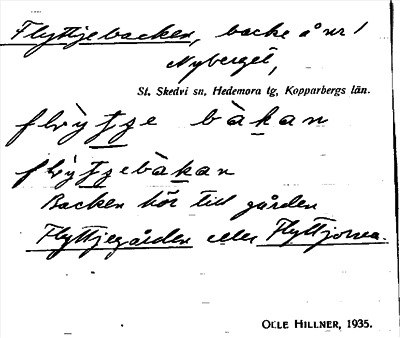 Flyttjebacken, backe å nr 1
Nyberget,
St. Skedvi sn, Hedemora tg, Kopparbergs län.
bàkan
Backen hör till gården
Flyttjegården eller Flyttjorsa.
OLLE HILLNER, 1935.